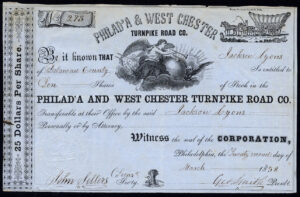 275
PHILAD'A & WEST CHESTER
TURNPIKE ROAD CO.
Be it known THAT Jackson Lyons
of Delaware County is entitled to
Ten Shares of Stock in the
PHILAD'A AND WEST CHESTER TURNPIKE ROAD CO.
Transferable at their Office by the said Jackson Lyons
Personally or by Attorney.
Witness the seal of the CORPORATION,
Philadelphia, the Twenty second day of
March 1858
John Sellers Secy & Treas. Geo Smith Presdt.
25 Dollars Per Share.